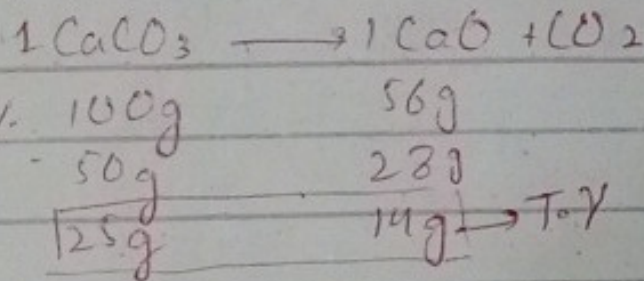 1 CaCO3 ⟶ 1 CaO + CO2
100g 56g
50g 28g
25g 14g → T.Y